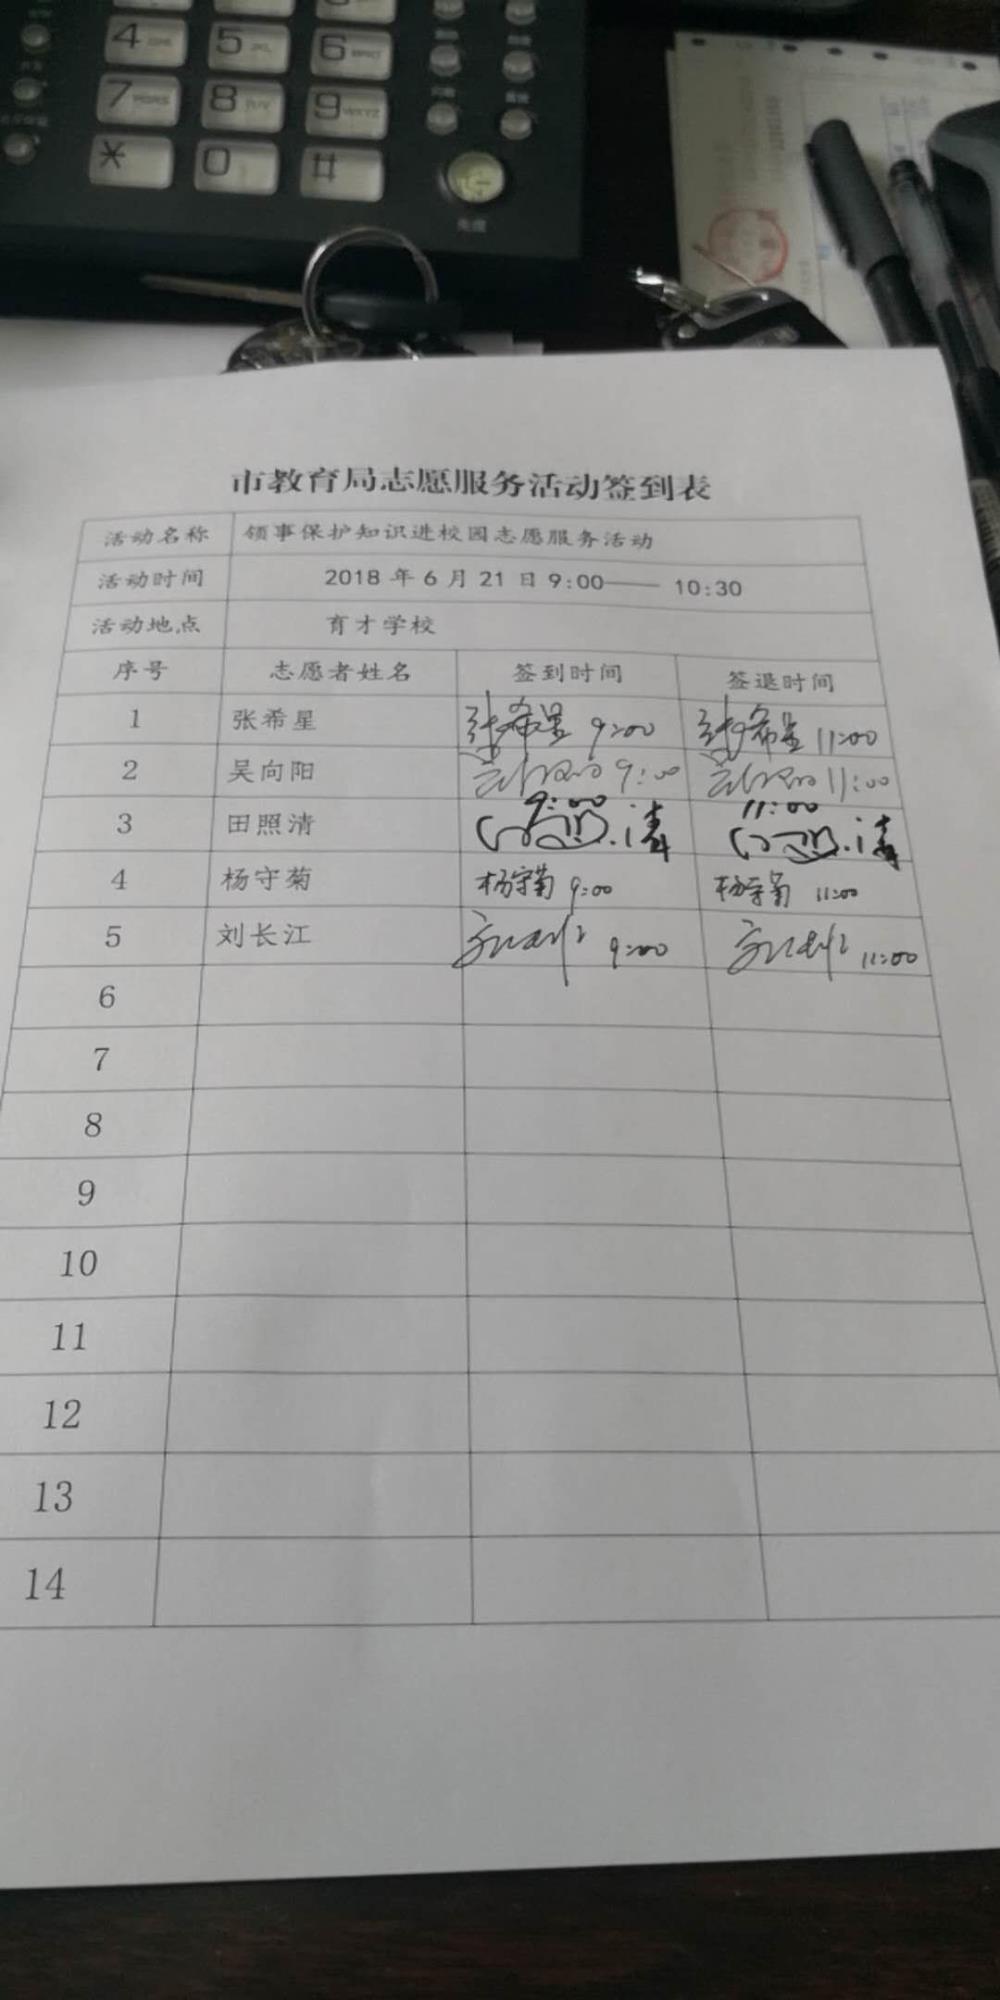 4 5 6
7 8 9
* 0 #
市教育局志愿服务活动签到表
活动名称 领事保护知识进校园志愿服务活动
活动时间 2018 年 6 月 21 日 9:00—— 10:30
活动地点 育才学校
序号 志愿者姓名 签到时间 签退时间
1 张希星 张希星 9:00 张希星 11:00
2 吴向阳 吴向阳 9:00 吴向阳 11:00
3 田照清 9:00 田照清 11:00 田照清
4 杨守菊 杨守菊 9:00 杨守菊 11:00
5 刘长江 9:00 11:00
6
7
8
9
10
11
12
13
14